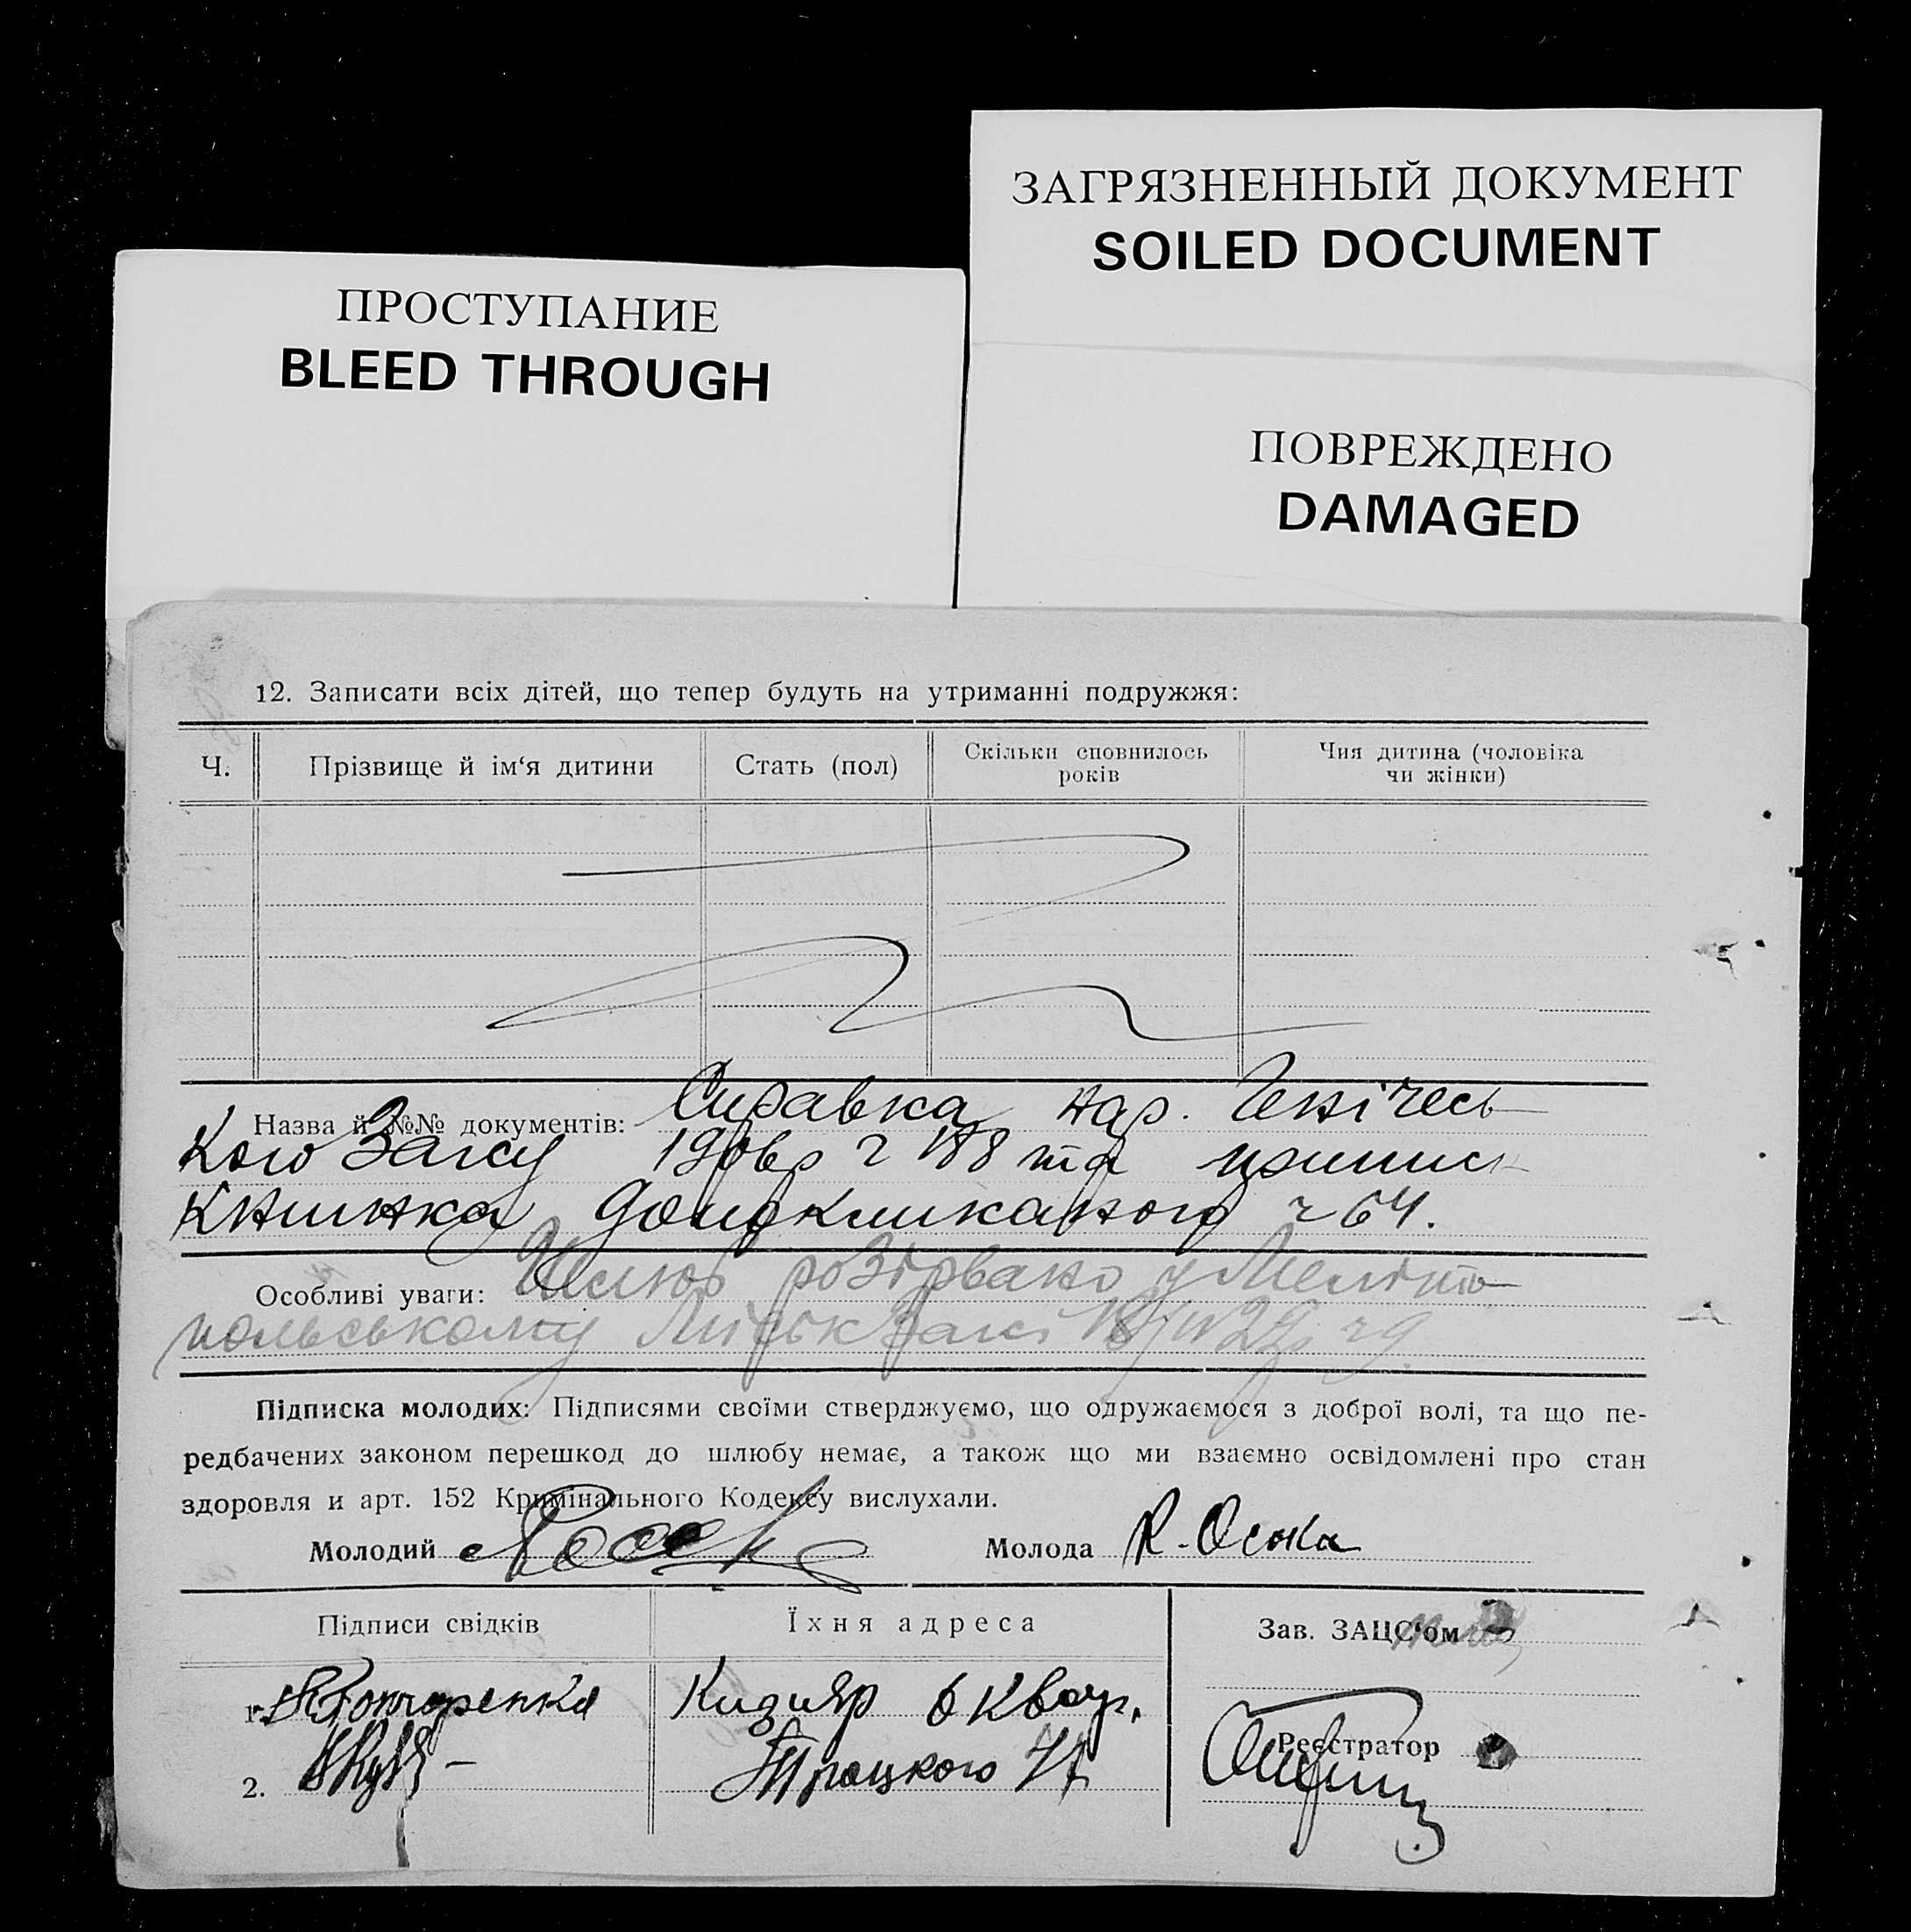 ЗАГРЯЗНЕННЫЙ ДОКУМЕНТ
SOILED DOCUMENT
ПРОСТУПАНИЕ
BLEED THROUGH
ПОВРЕЖДЕНО
DAMAGED
12. Записати всіх дітей, що тепер будуть на утриманні подружжя:
Ч.
Прізвище й ім‘я дитини
Стать (пол)
Скільки сповнилось
років
Чия дитина (чоловіка
чи жінки)
Назва й №№ документів: Справка нар. Генічесь
кого Загсу та
книжка ч 64.
Особливі уваги: Шлюб розірвано у Меліто
польському
Підписка молодих: Підписями своїми стверджуємо, що одружаємося з доброї волі, та що пе-
редбачених законом перешкод до шлюбу немає, а також що ми взаємно освідомлені про стан
здоровля и арт. 152 Кримінального Кодексу вислухали.
Молодий
Молода
Підписи свідків
Їхня адреса
Зав. ЗАЦС‘ом
1. Кизияр
2. Троцкого
Реєстратор